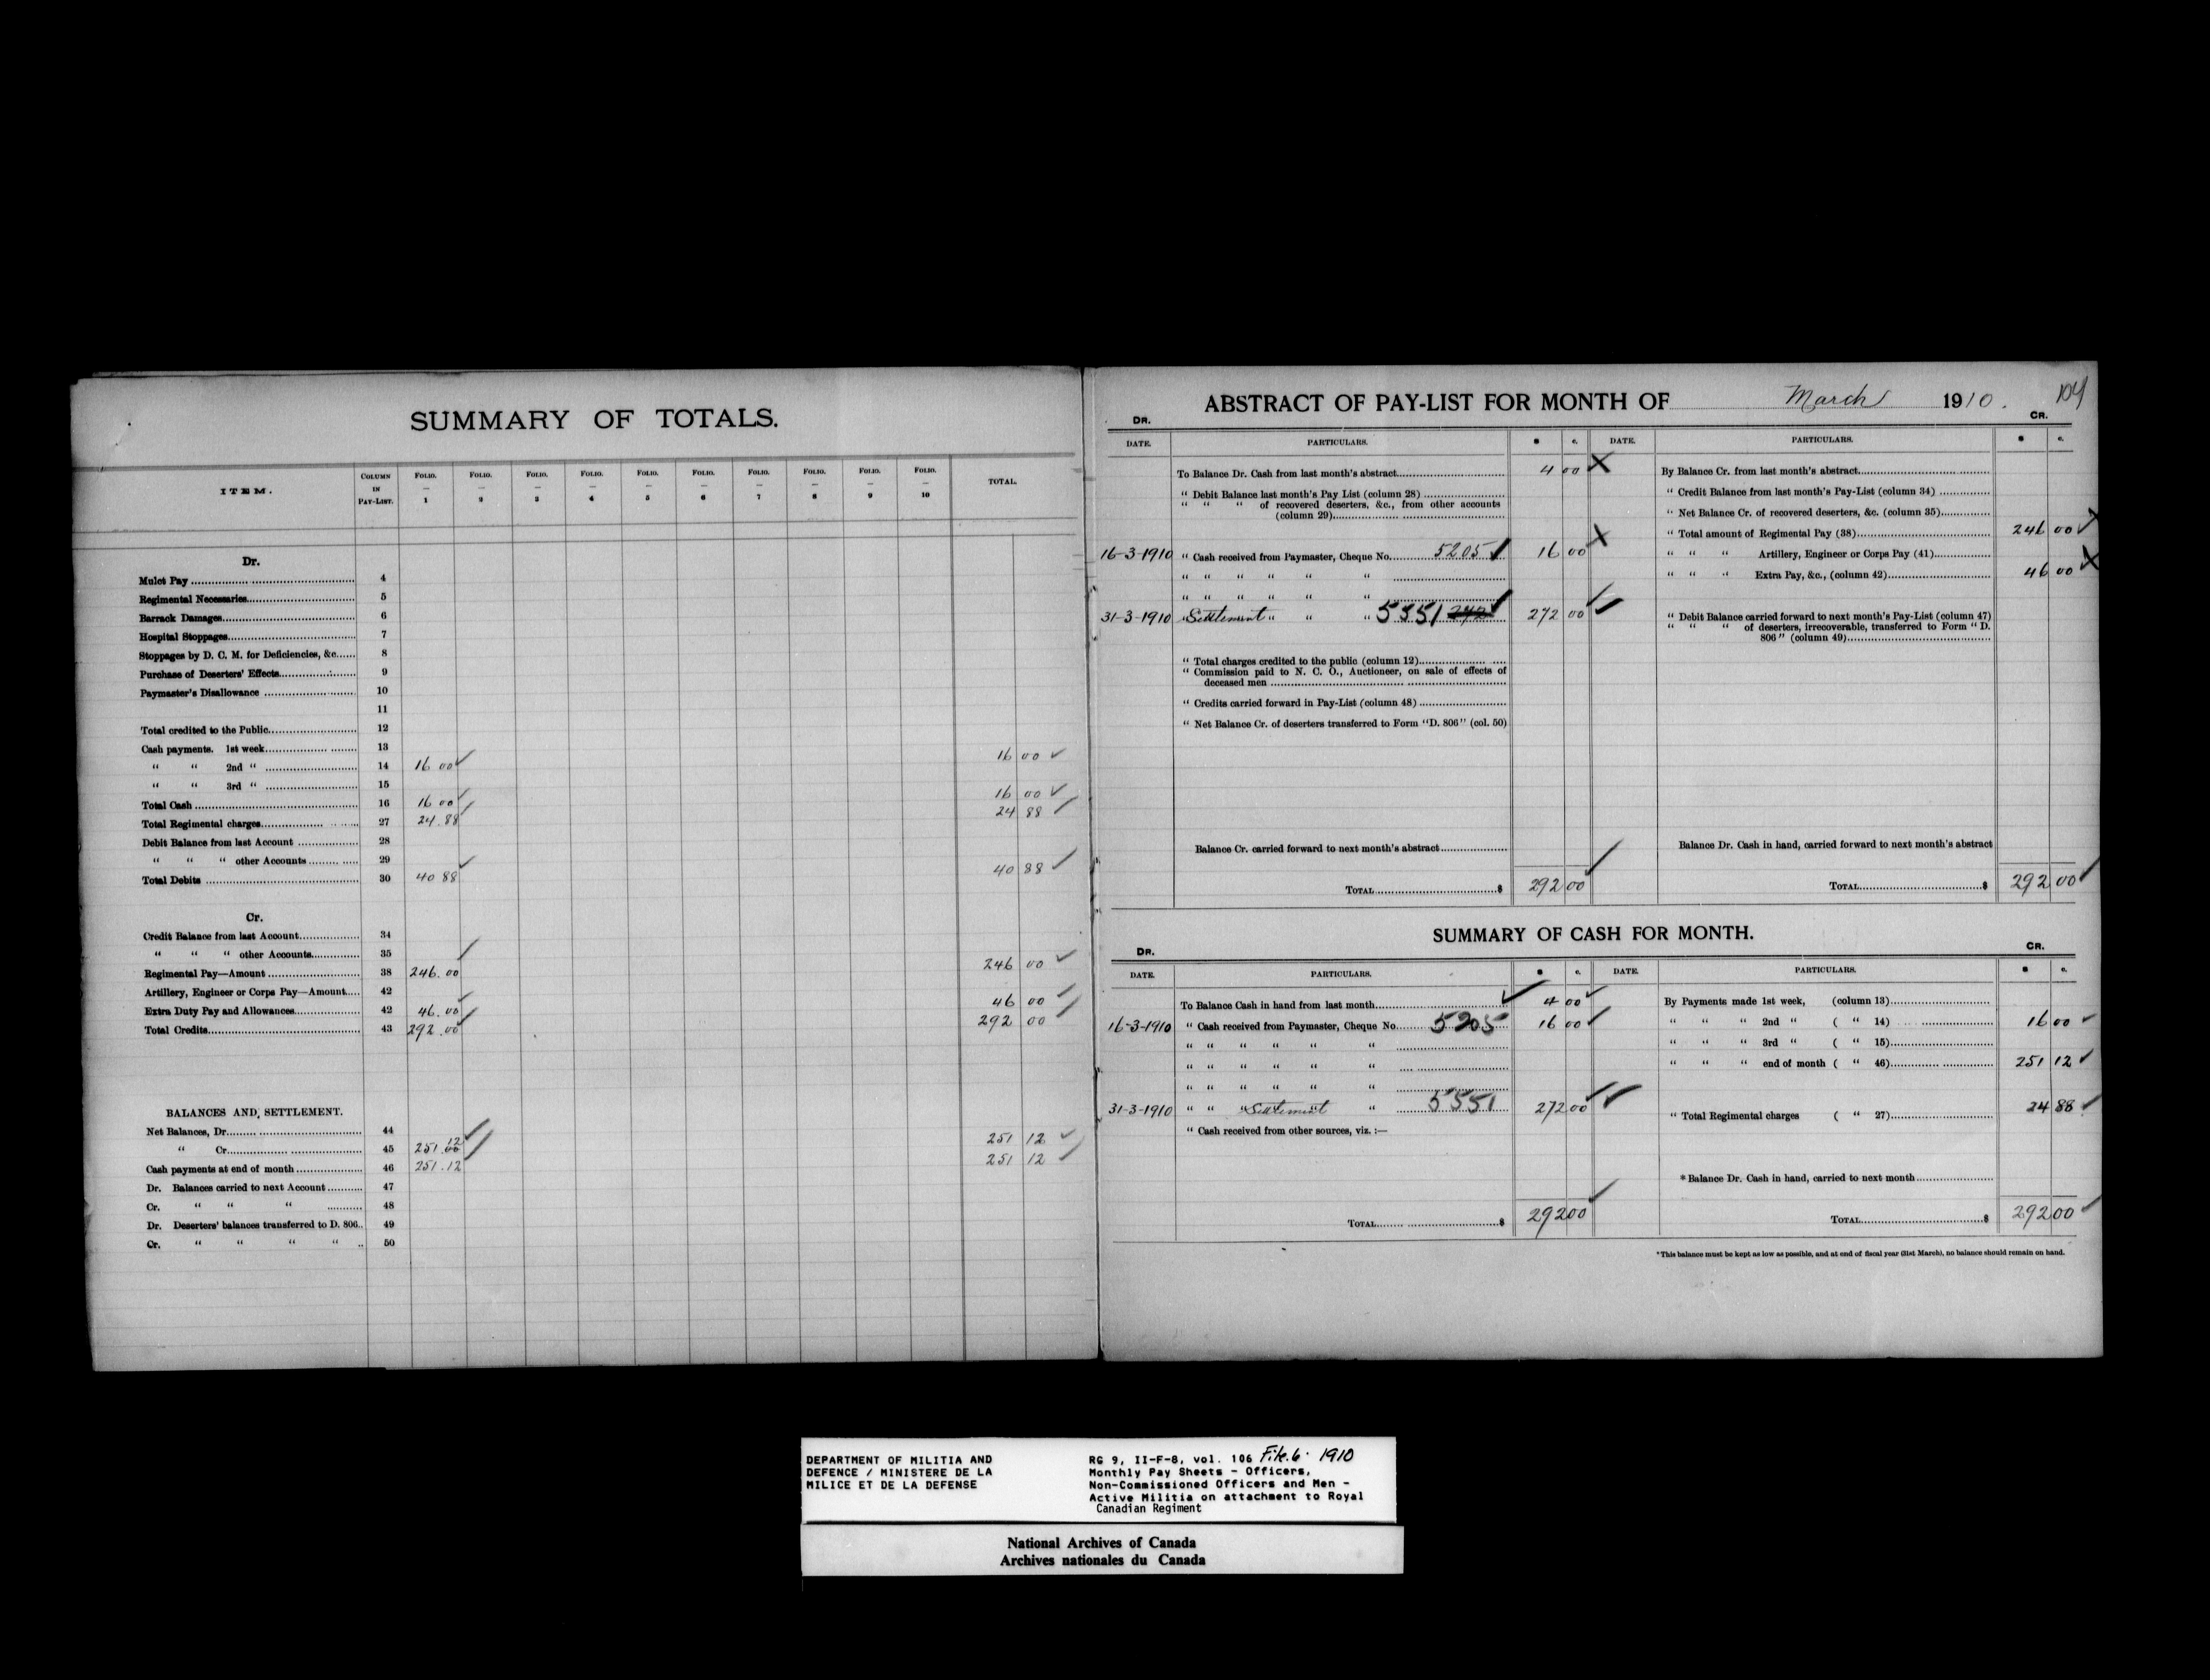 SUMMARY OF TOTALS.
ITEM.
COLUMN IN PAY-LIST.
FOLIO. — 1
FOLIO. — 2
FOLIO. — 3
FOLIO. — 4
FOLIO. — 5
FOLIO. — 6
FOLIO. — 7
FOLIO. — 8
FOLIO. — 9
FOLIO. — 10
TOTAL.
Dr.
Mulct Pay 4
Regimental Necessaries 5
Barrack Damages 6
Hospital Stoppages 7
Stoppages by D. C. M. for Deficiencies, &c 8
Purchase of Deserters' Effects 9
Paymaster's Disallowance 10
11
Total credited to the Public 12
Cash payments. 1st week 13
" " 2nd " 14 16 00 16 00
" " 3rd " 15
Total Cash 16 16 00 16 00
Total Regimental charges 27 24.88 24 88
Debit Balance from last Account 28
" " " other Accounts 29
Total Debits 30 40 88 40 88
Cr.
Credit Balance from last Account 34
" " " other Accounts 35
Regimental Pay—Amount 38 246.00 246 00
Artillery, Engineer or Corps Pay—Amount 42
Extra Duty Pay and Allowances 42 46.00 46 00
Total Credits 43 292.00 292 00
BALANCES AND SETTLEMENT.
Net Balances, Dr 44
" Cr 45 251.00 12 251 12
Cash payments at end of month 46 251.12 251 12
Dr. Balances carried to next Account 47
Cr. " " " 48
Dr. Deserters' balances transferred to D. 806 49
Cr. " " " " 50
104
ABSTRACT OF PAY-LIST FOR MONTH OF March 1910.
DR. CR.
DATE. PARTICULARS. $ c. DATE. PARTICULARS. $ c.
To Balance Dr. Cash from last month's abstract 4 00
" Debit Balance last month's Pay List (column 28)
" " " of recovered deserters, &c., from other accounts
(column 29)
16-3-1910 " Cash received from Paymaster, Cheque No. 5205 16 00
" " " " " "
" " " " " "
31-3-1910 " Settlement " " " 5551 272 272 00
" Total charges credited to the public (column 12)
" Commission paid to N. C. O., Auctioneer, on sale of effects of
deceased men
" Credits carried forward in Pay-List (column 48)
" Net Balance Cr. of deserters transferred to Form "D. 806" (col. 50)
Balance Cr. carried forward to next month's abstract
TOTAL $ 292 00
By Balance Cr. from last month's abstract
" Credit Balance from last month's Pay-List (column 34)
" Net Balance Cr. of recovered deserters, &c. (column 35)
" Total amount of Regimental Pay (38) 246 00
" " " Artillery, Engineer or Corps Pay (41)
" " " Extra Pay, &c., (column 42) 46 00
" Debit Balance carried forward to next month's Pay-List (column 47)
" " " of deserters, irrecoverable, transferred to Form "D.
806" (column 49)
Balance Dr. Cash in hand, carried forward to next month's abstract
TOTAL $ 292 00
SUMMARY OF CASH FOR MONTH.
DR. CR.
DATE. PARTICULARS. $ c. DATE. PARTICULARS. $ c.
To Balance Cash in hand from last month 4 00
16-3-1910 " Cash received from Paymaster, Cheque No. 5205 16 00
" " " " " "
" " " " " "
" " " " " "
31-3-1910 " " " Settlement " " 5551 272 00
" Cash received from other sources, viz. :—
TOTAL $ 292 00
By Payments made 1st week, (column 13)
" " " 2nd " ( " 14) 16 00
" " " 3rd " ( " 15)
" " " end of month ( " 46) 251 12
" Total Regimental charges ( " 27) 24 88
* Balance Dr. Cash in hand, carried to next month
TOTAL $ 292 00
* This balance must be kept as low as possible, and at end of fiscal year (31st March), no balance should remain on hand.
DEPARTMENT OF MILITIA AND
DEFENCE / MINISTERE DE LA
MILICE ET DE LA DEFENSE
RG 9, II-F-8, vol. 106 File. 6. 1910
Monthly Pay Sheets - Officers,
Non-Commissioned Officers and Men -
Active Militia on attachment to Royal
Canadian Regiment
National Archives of Canada
Archives nationales du Canada